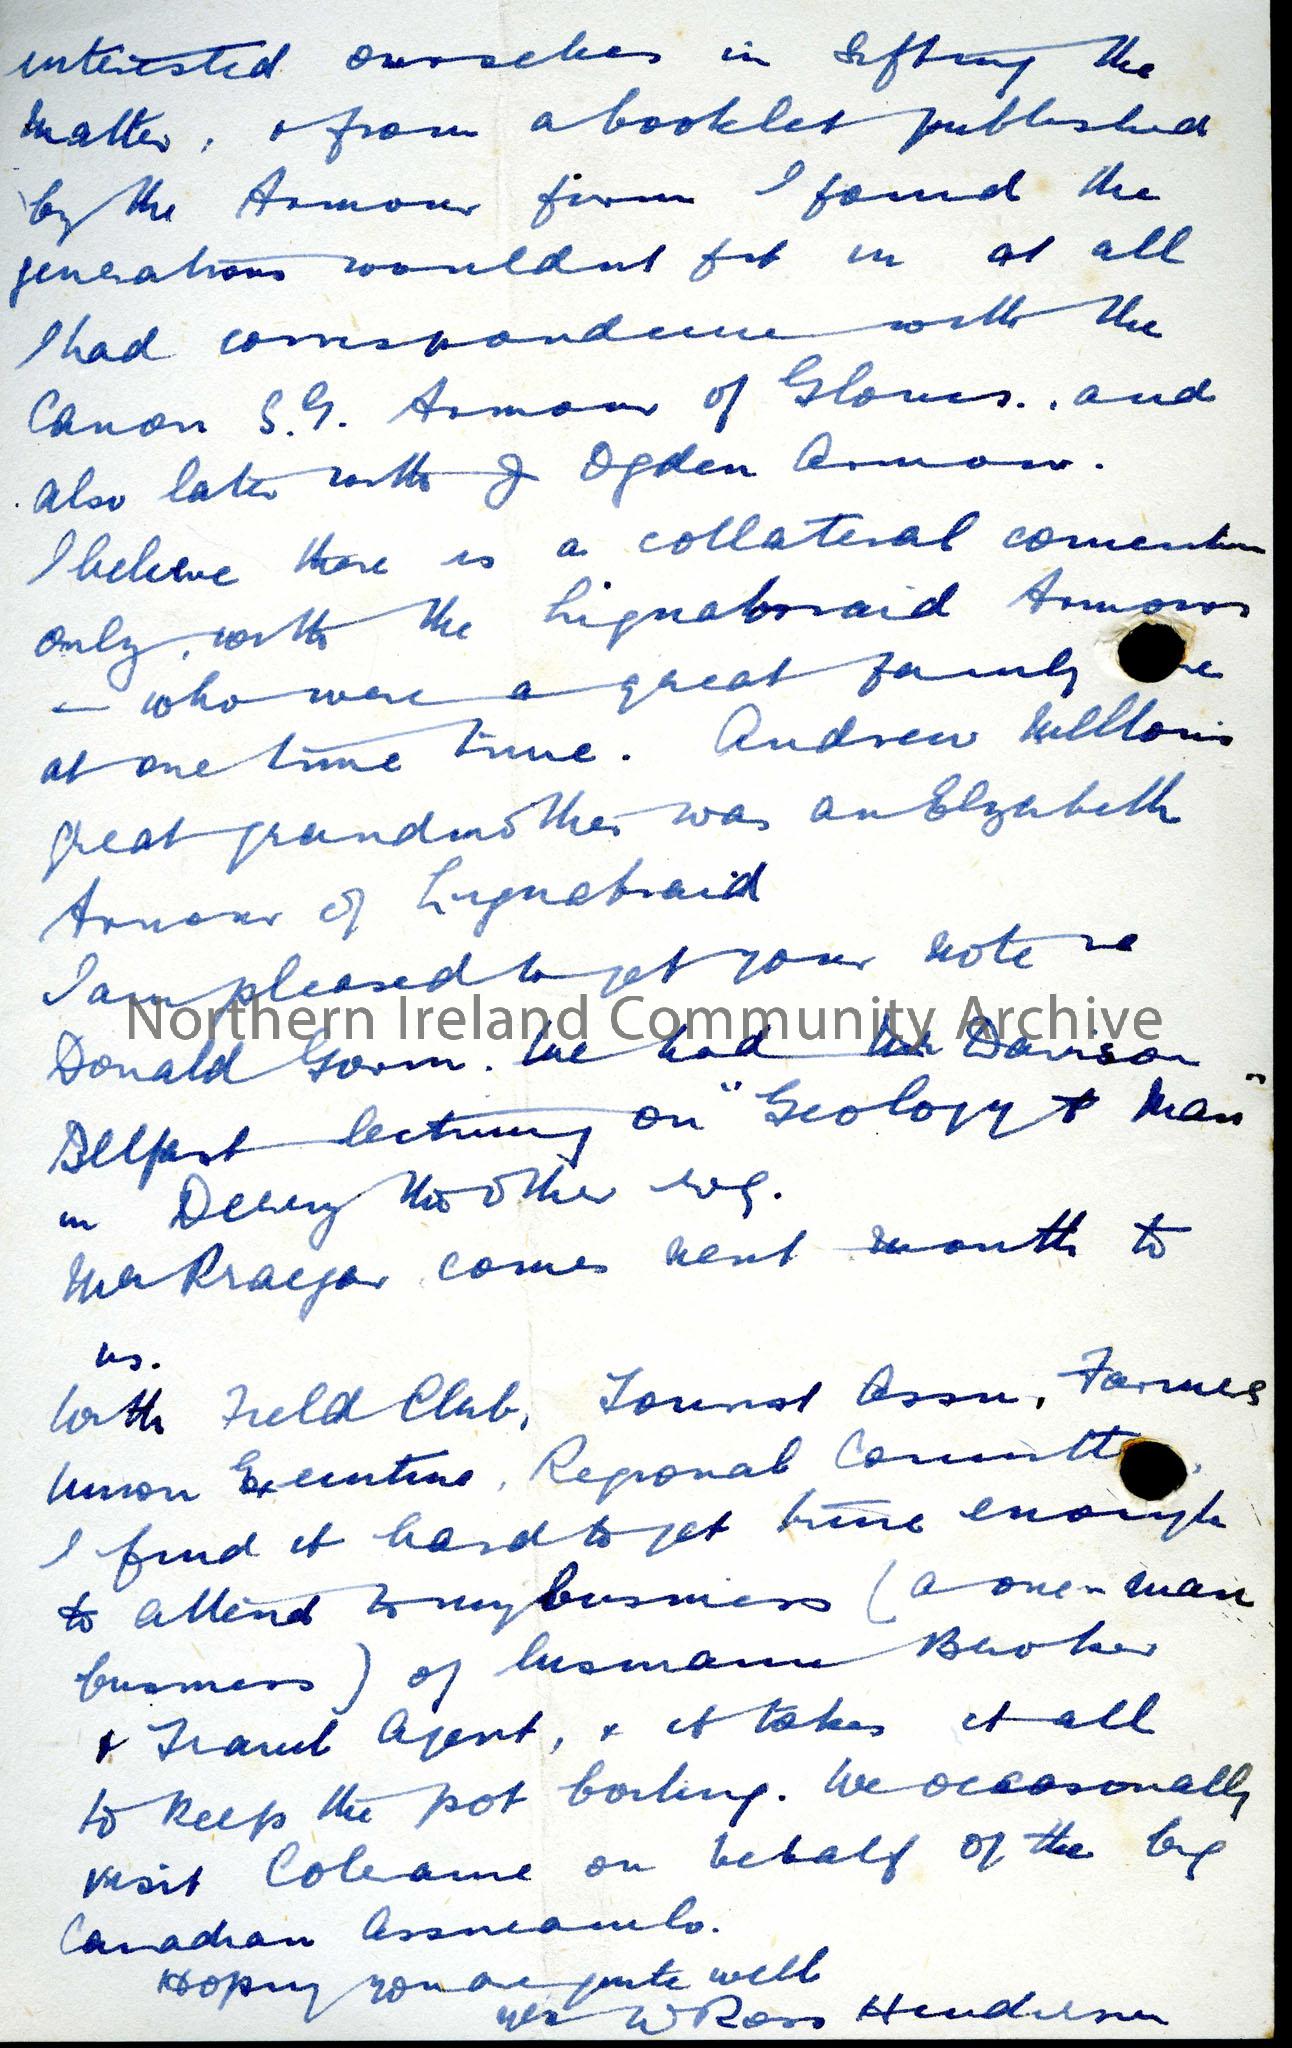 interested ourselves in sifting the
matter, & from a booklet published
by the Armour firm I found the
generations wouldnt fit in at all
I had correspondence with the
Canon S.G. Armour of Gloucs., and
also later with J Ogden Armour.
I believe there is a collateral connection
only, with the Lignabraid Armours
— who were a great family
at one time time. Andrew Mellons
great grandmother was an Elizabeth
Armour of Lignabraid
I am pleased to get your note re
Northern Ireland Community Archive
Donald Gorm. We had Mr Davison
Belfast lecturing on "Geology & Man"
in Derry the other evg.
Mr Praegar comes next month to
us.
With Field Club, Tourist Assn, Farmers
Union Executive, Regional Committee,
I find it hard to get time enough
to attend to my business (a one-man
business) of Insurance Broker
& Travel Agent, & it takes it all
to keep the pot boiling. We occasionally
visit Coleraine on behalf of the big
Canadian Assurance Co.
Hoping you are quite well
yrs W Ross Henderson